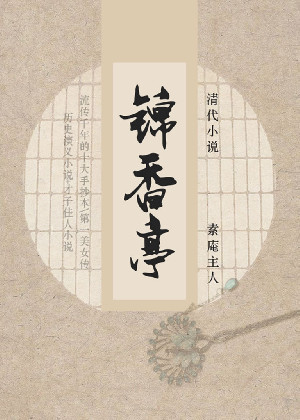 清代小说
素庵主人
锦香亭
流传千年的十大手抄本/第一美女传
历史演义小说/才子佳人小说